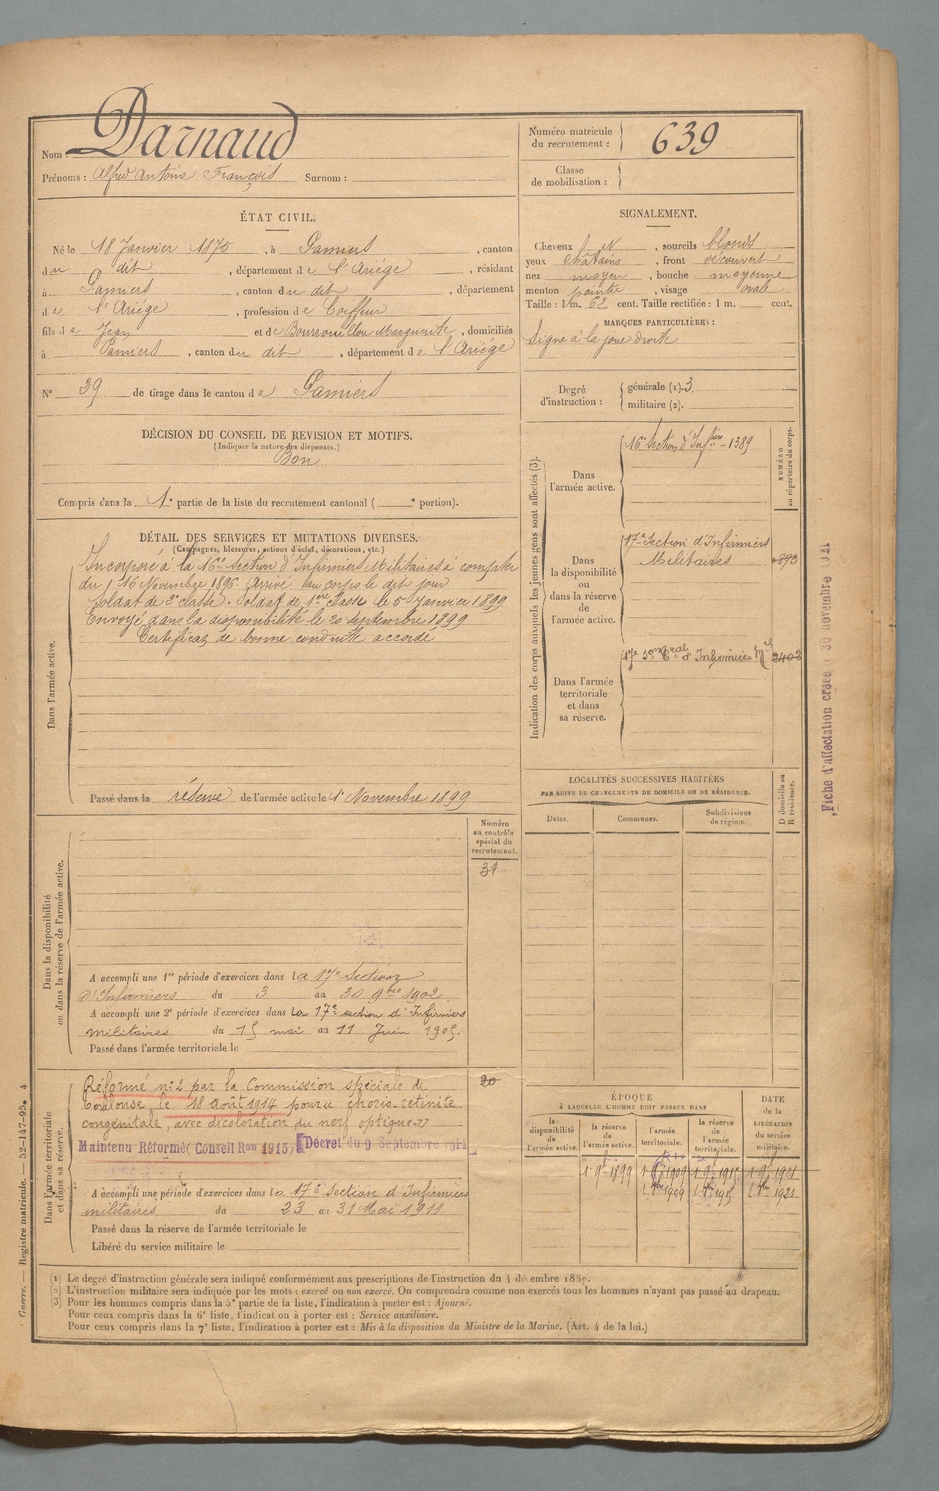 Nom : Darnaud
Prénoms : Alfred Antoine François Surnom :
Numéro matricule du recrutement : 639
Classe de mobilisation :
ÉTAT CIVIL.
Né le 18 Janvier 1875, à Pamiers, canton
du dit, département de l'Ariège, résidant
à Pamiers, canton du dit, département
de l'Ariège, profession de Coiffeur
fils de Jean et de Marguerite, domiciliés
à Pamiers, canton du dit, département de l'Ariège
N° 39 de tirage dans le canton de Pamiers
SIGNALEMENT.
Cheveux, sourcils blonds
yeux châtains, front découvert
nez moyen, bouche moyenne
menton pointu, visage ovale
Taille : 1 m. 62 cent. Taille rectifiée : 1 m. cent.
MARQUES PARTICULIÈRES :
Signe à la joue droite
Degré d'instruction : générale (1). 3
militaire (2).
DÉCISION DU CONSEIL DE REVISION ET MOTIFS.
(Indiquer la nature des dispenses.)
Bon
Compris dans la 1e partie de la liste du recrutement cantonal ( e portion).
DÉTAIL DES SERVICES ET MUTATIONS DIVERSES.
(Campagnes, blessures, actions d'éclat, décorations, etc.)
Dans l'armée active.
Incorporé à la 16e Section d'Infirmiers Militaires à compter
du 16 Novembre 1896. Arrivé au corps le dit jour
Soldat de 2e classe. Soldat de 1ère classe le 5 Janvier 1899
Envoyé dans la disponibilité le 20 septembre 1899
Certificat de bonne conduite accordé
Passé dans la réserve de l'armée active le 1er Novembre 1899
Indication des corps auxquels les jeunes gens sont affectés (3).
NUMÉRO au répertoire du corps.
Dans l'armée active.
16e Section d'Infirs - 1389
Dans la disponibilité ou dans la réserve de l'armée active.
17e Section d'Infirmiers
Militaires
Dans l'armée territoriale et dans sa réserve.
17e d'Infirmiers 2402
Fiche d'affectation créée : 30 novembre
LOCALITÉS SUCCESSIVES HABITÉES
PAR SUITE DE CHANGEMENTS DE DOMICILE OU DE RÉSIDENCE.
Dates. Communes. Subdivisions de région. D domicile ou R résidence.
Dans la disponibilité ou dans la réserve de l'armée active.
Numéro au contrôle spécial du recrutement.
31
A accompli une 1re période d'exercices dans la 17e Section
d'Infirmiers du 3 au 30 9bre 1902.
A accompli une 2e période d'exercices dans la 17e section d'Infirmiers
militaires du 15 mai au 11 Juin 1905.
Passé dans l'armée territoriale le
Dans l'armée territoriale et dans sa réserve.
Réformé n° 2 par la Commission spéciale de 20
Toulouse, le 18 août 1914 pour chorio-rétinite
congénitale, avec décoloration du nerf optique
Maintenu Réformé (Conseil Ron 1915) Décret du 9 Septembre 1914
A accompli une période d'exercices dans la 17e Section d'Infirmiers
militaires du 23 au 31 Mai 1911.
Passé dans la réserve de l'armée territoriale le
Libéré du service militaire le
ÉPOQUE
À LAQUELLE L'HOMME DOIT PASSER DANS
la disponibilité de l'armée active. la réserve de l'armée active. l'armée territoriale. la réserve de l'armée territoriale.
DATE de la LIBÉRATION du service militaire.
1er 9bre 1899 1909 1915 1921
1909 1915 1921
(1) Le degré d'instruction générale sera indiqué conformément aux prescriptions de l'instruction du 4 décembre 1889.
(2) L'instruction militaire sera indiquée par les mots : exercé ou non exercé. On comprendra comme non exercés tous les hommes n'ayant pas passé au drapeau.
(3) Pour les hommes compris dans la 5e partie de la liste, l'indication à porter est : Ajourné.
Pour ceux compris dans la 6e liste, l'indication à porter est : Service auxiliaire.
Pour ceux compris dans la 7e liste, l'indication à porter est : Mis à la disposition du Ministre de la Marine. (Art. 4 de la loi.)
Guerre. — Registre matricule. — 52-147-95. 4